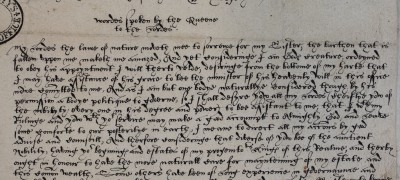 wordes spoken by the Queene
to the Lordes
My Lordes the lawe of nature moveth me to sorrowe for my Sister, the burthen that is
fallen uppon me maketh me amazed. And yet considering I am Gods creature, ordeyned
to obey his appointment I will therto yelde, desiering from the bottom of my harte that
I may have assistance of his grace to be the minister of his heavenly will in this office
now comitted to me. And as I am but one bodye naturallye considered though by his
permission a bodye politique to governe, so I shall desyre you all my Lordes chiefly you of
the nobility every one in his degree and power, to bee assistant to me, that I wth my
Rulinge and you wth yor service may make a good accoumpt to Almighty God and leave
some comforte to our posteritye in earth. I meane to direct all my accons by good
advise and counsell. And therfore considering that diverse of you bee of the auncient
nobility having yor begininges and estates of my progenitors Kinges of this Realme, and therby
ought in honour to have the more naturall care for maynteyning of my estate and
this comon wealth. Some others have been of long experience in governaunce and